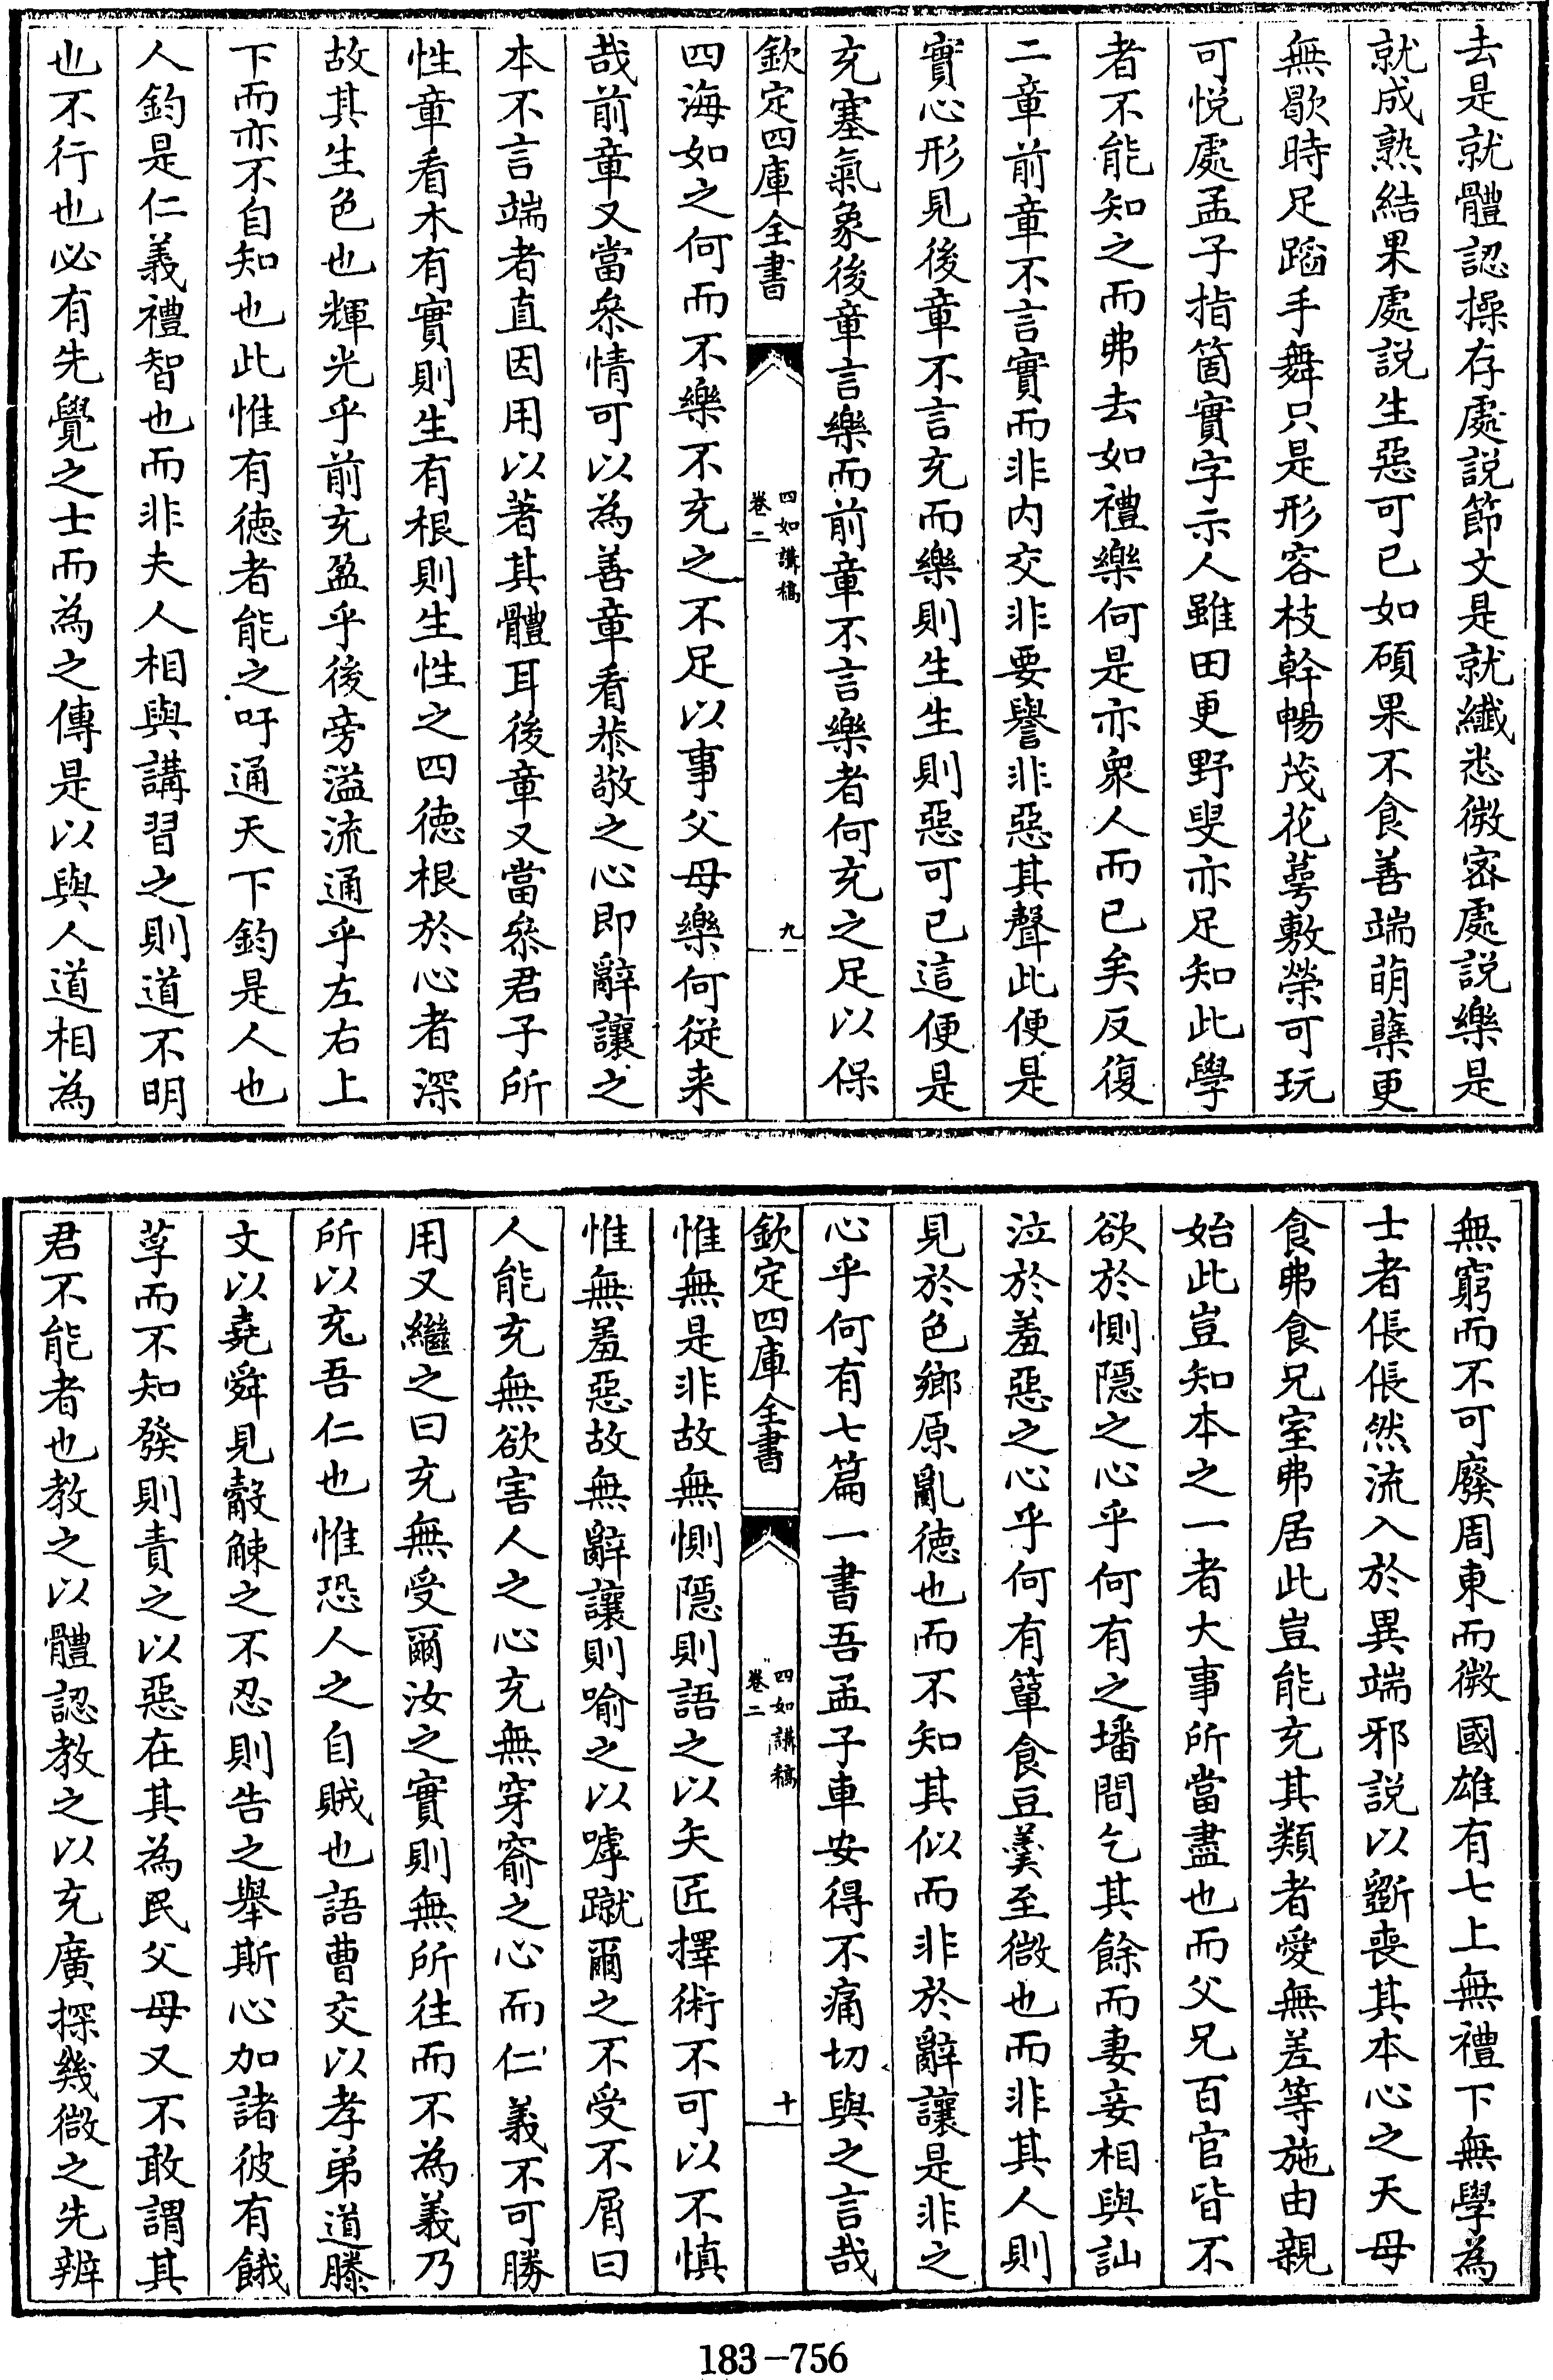 去是就體認操存處説節文是就纎悉微密處説樂是
就成熟結果處説生惡可已如碩果不食善端萌蘖更
無歇時足蹈手舞只是形容枝幹暢茂花萼敷榮可玩
可悦處孟子指箇實字示人雖田更野叟亦足知此學
者不能知之而弗去如禮樂何是亦衆人而已矣反復
二章前章不言實而非内交非要譽非惡其聲此便是
實心形見後章不言充而樂則生生則惡可已這便是
充塞氣象後章言樂而前章不言樂者何充之足以保
欽定四庫全書
四如講稿
卷二
九
四海如之何而不樂不充之不足以事父母樂何從來
哉前章又當叅情可以為善章看恭敬之心即辭讓之
本不言端者直因用以著其體耳後章又當叅君子所
性章看木有實則生有根則生性之四德根於心者深
故其生色也輝光乎前充盈乎後旁溢流通乎左右上
下而亦不自知也此惟有德者能之吁通天下鈞是人也
人鈞是仁義禮智也而非夫人相與講習之則道不明
也不行也必有先覺之士而為之傳是以與人道相為
無窮而不可廢周東而微國雄有七上無禮下無學為
士者倀倀然流入於異端邪説以斲喪其本心之天母
食弗食兄室弗居此豈能充其類者愛無差等施由親
始此豈知本之一者大事所當盡也而父兄百官皆不
欲於惻隠之心乎何有之墦間乞其餘而妻妾相與訕
泣於羞惡之心乎何有簞食豆羮至微也而非其人則
見於色鄉原亂德也而不知其似而非於辭讓是非之
心乎何有七篇一書吾孟子車安得不痛切與之言哉
欽定四庫全書
四如講稿
卷二
十
惟無是非故無惻隠則語之以矢匠擇術不可以不慎
惟無羞惡故無辭讓則喻之以嘑蹴爾之不受不屑曰
人能充無欲害人之心充無穿窬之心而仁義不可勝
用又繼之曰充無受爾汝之實則無所往而不為義乃
所以充吾仁也惟恐人之自賊也語曹交以孝弟道滕
文以堯舜見觳觫之不忍則告之舉斯心加諸彼有餓
莩而不知發則責之以惡在其為民父母又不敢謂其
君不能者也教之以體認教之以充廣探幾微之先辨
183-756